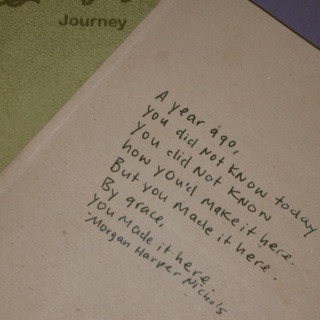 Journey
A year ago,
you did Not Know today
You did Not Know
how you'd make it here.
But you Made it here.
By grace,
you made it here.
-Morgan Harper Nichols